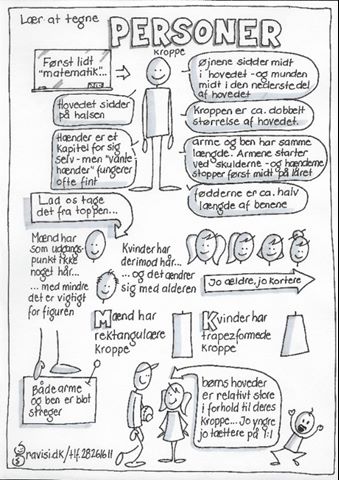 Lær at tegne
PERSONER
kroppe
Først lidt
"matematik"...
Øjnene sidder midt
i hovedet - og munden
midt i den nederste del
af hovedet
Hovedet sidder
på halsen
Kroppen er ca. dobbelt
størrelse af hovedet.
Hænder er et
kapitel for sig
selv - men "vante
hænder" fungerer
ofte fint
arme og ben har samme
længde. Armene starter
ved skulderne - og hænderne
stopper først midt på låret
fødderne er ca. halv
længde af benene
Lad os tage
det fra toppen...
Mænd har
som udgangs-
punkt ikke
noget hår...
... med mindre
det er vigtigt
for figuren
Kvinder har
derimod hår...
... og det ændrer
sig med alderen
Jo ældre, jo kortere
Mænd har
rektangulære
kroppe
Kvinder har
trapezformede
kroppe
Både arme
og ben er blot
streger
børns hoveder
er relativt store
i forhold til deres
kroppe... Jo yngre
jo tættere på 1:1
ravisi.dk/tlf. 28261611